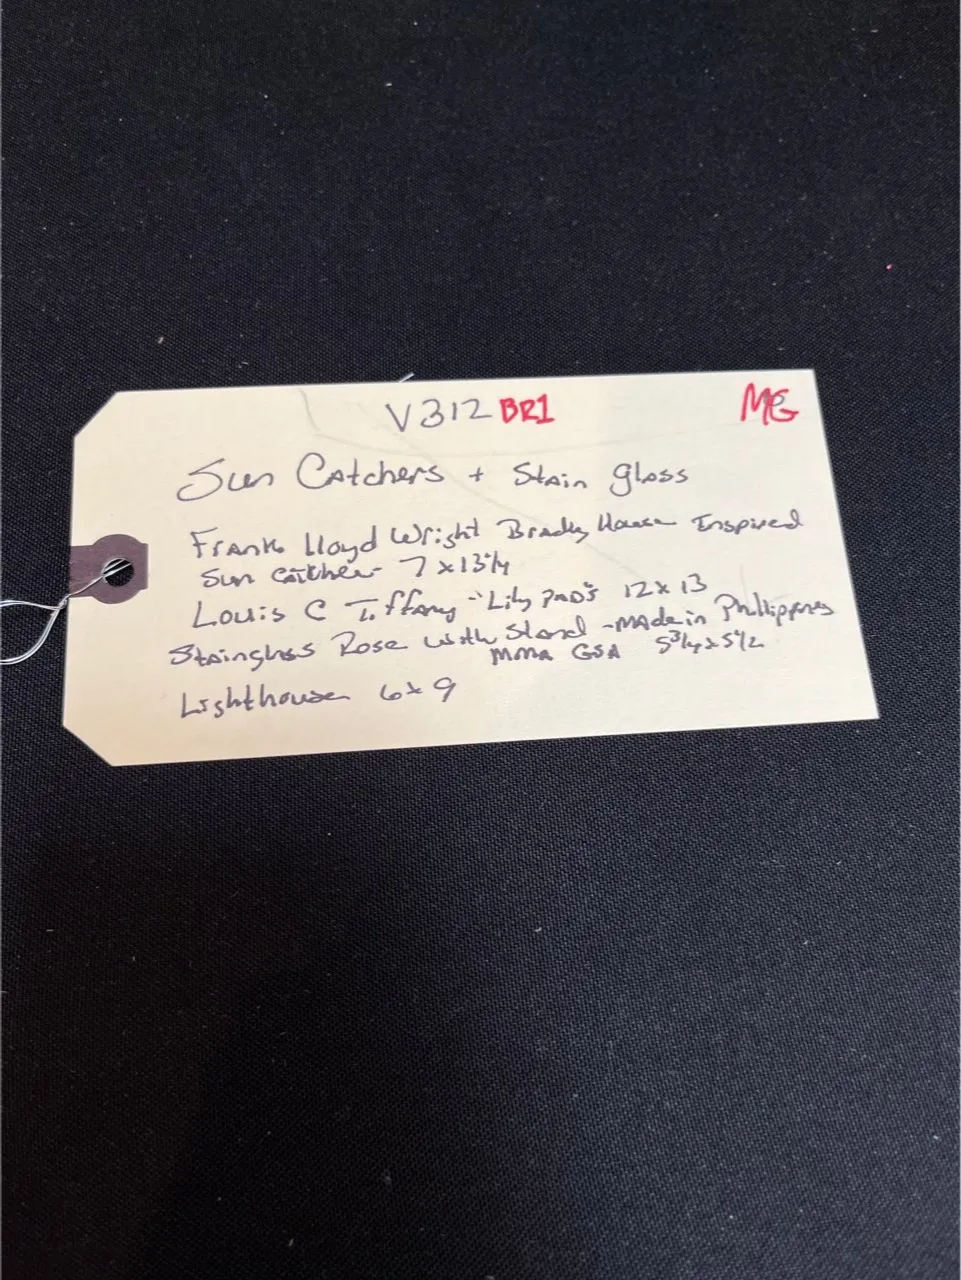 V312 BR1 MG
Sun Catchers + Stain glass
Frank Lloyd Wright Bradly House Inspired
Sun Catcher 7 x 13 1/4
Louis C Tiffany "Lily Pads 12 x 13
Stainglass Rose with Stand - made in Phillippines
MMA GSA 5 3/4 x 5 1/2
Lighthouse 6 x 9